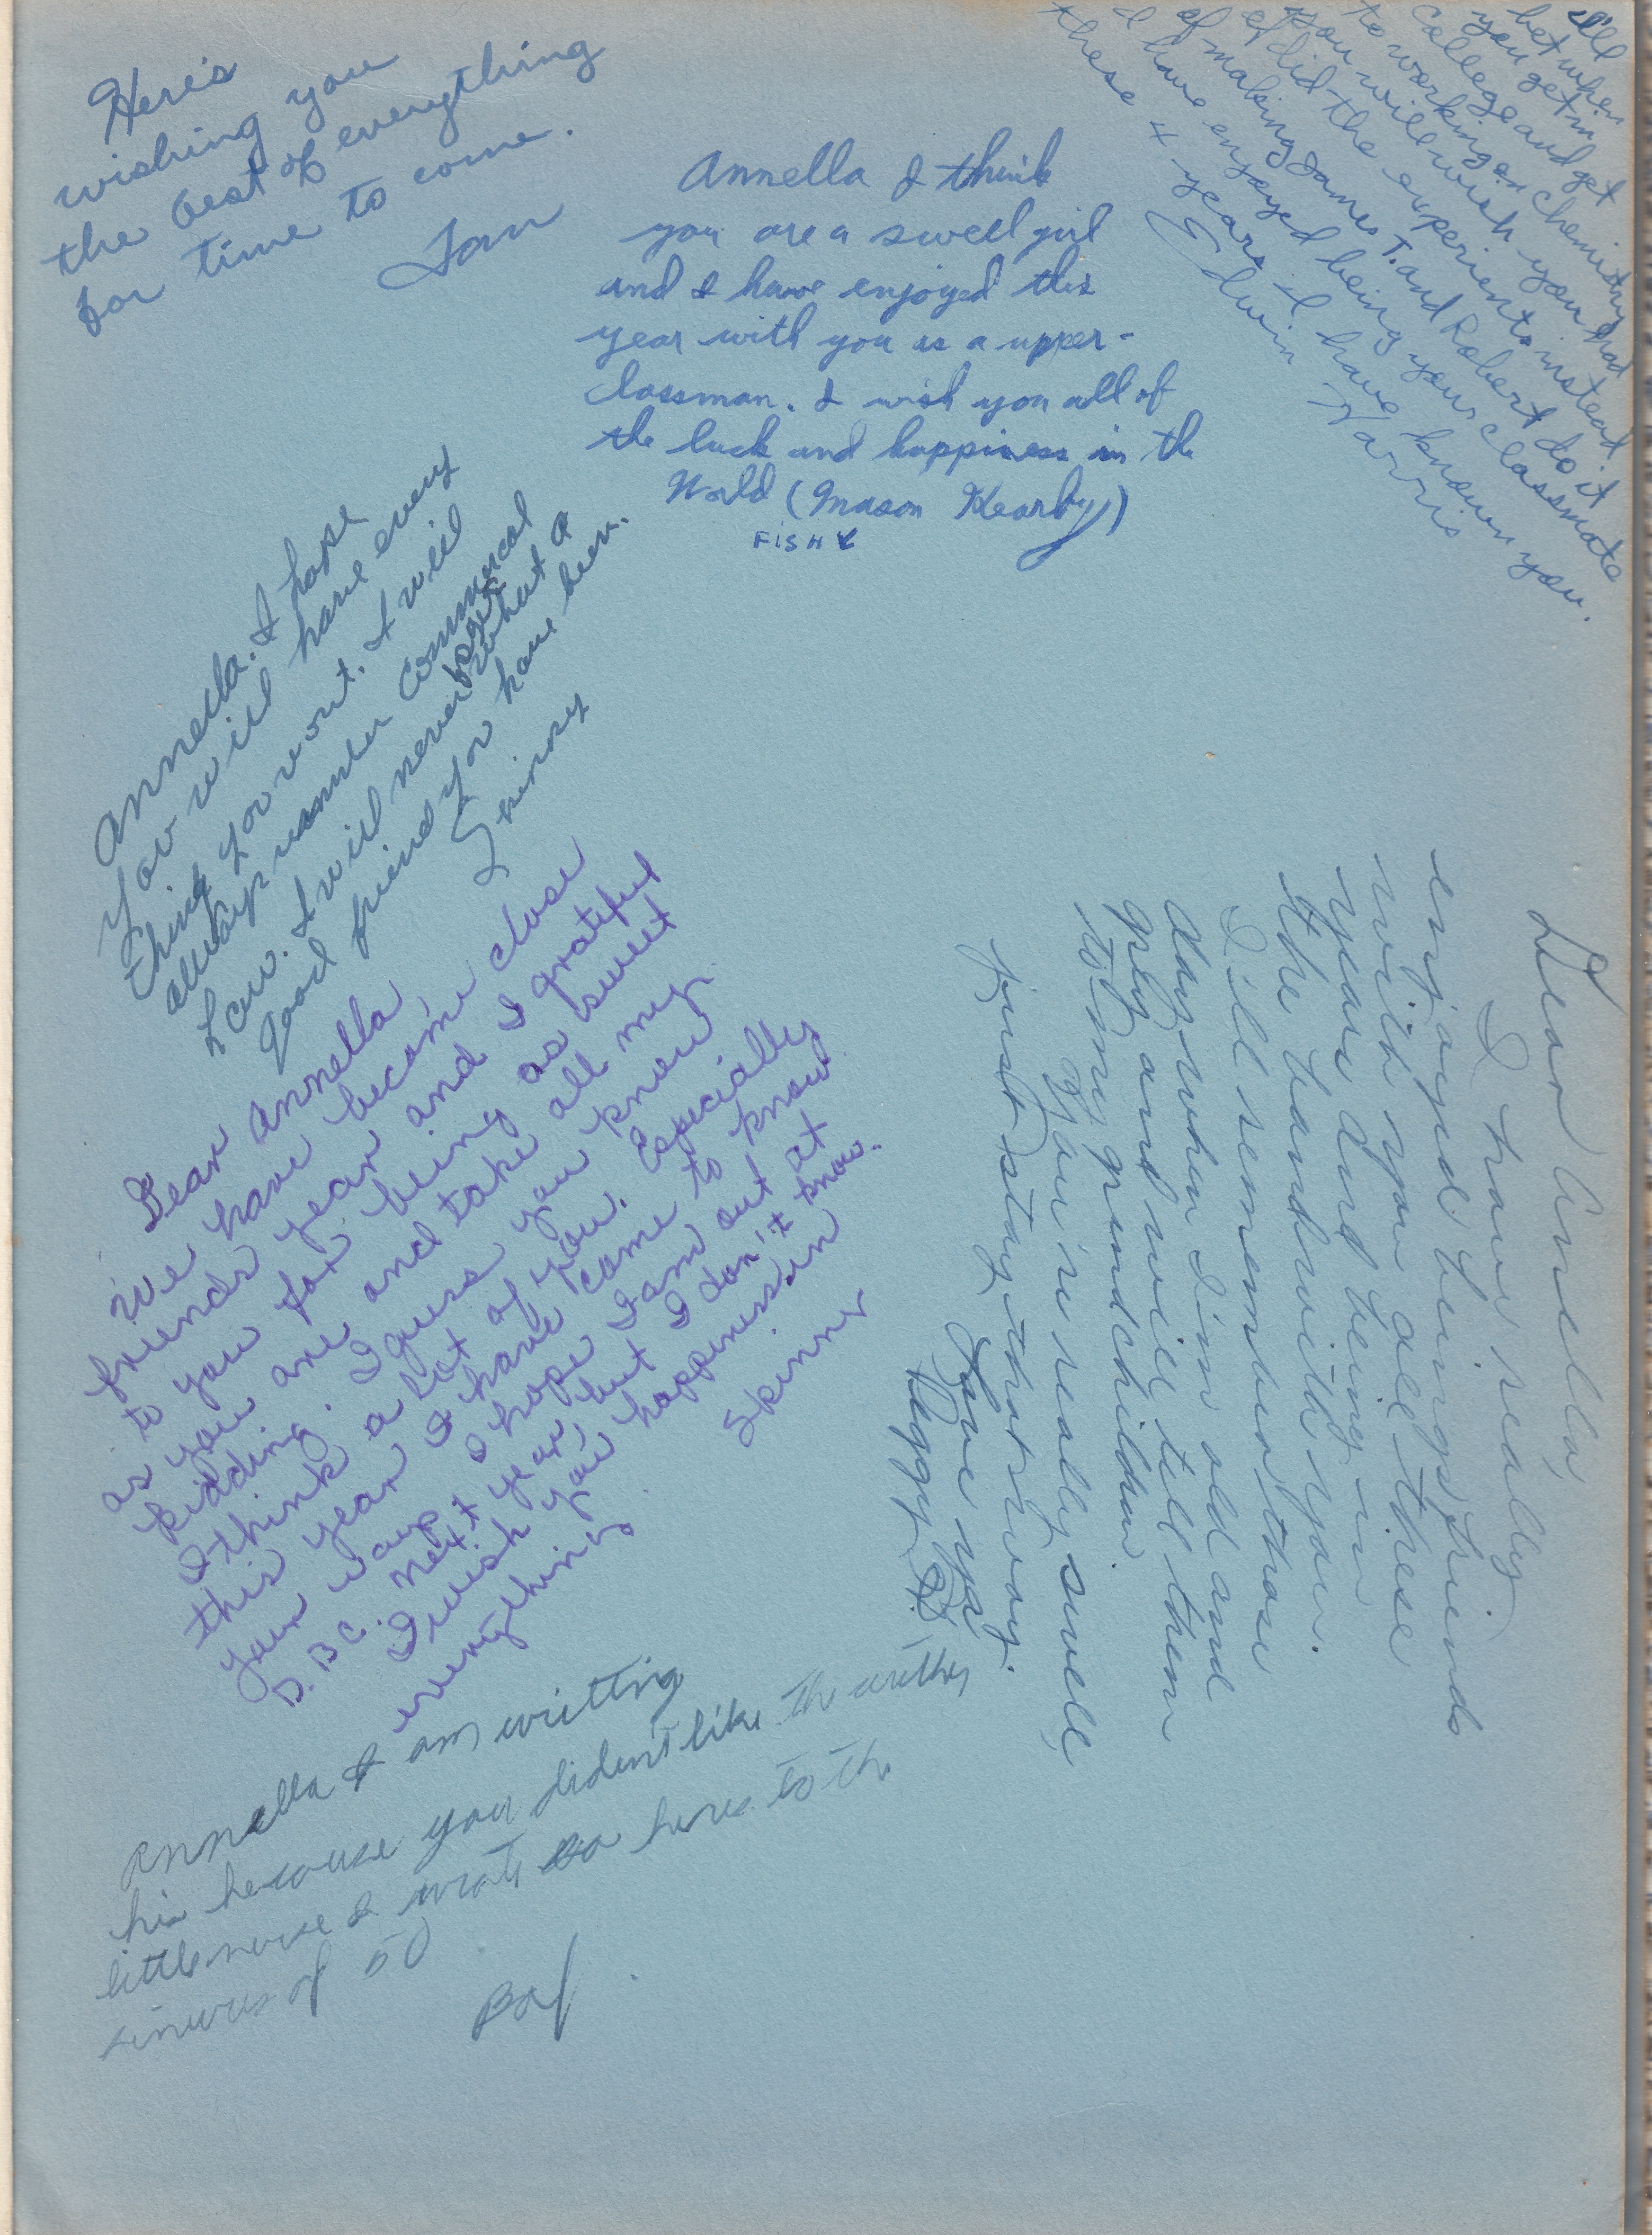 Here's
wishing you
the best of everything
for time to come.
Tom
Annella I think
you are a swell girl
and I have enjoyed this
year with you as a upper-
classman. I wish you all of
the luck and happiness in the
World (Mason Kearby)
FISH
I'll
bet when
you get in
college and get
to working on chemistry
you will wish you had
of did the experients instead
of making James T. and Robert do it
I have enjoyed being your classmate
these 4 years I have known you.
Edwin Harris
Annella. I hope
You will have every
thing you want. I will
always remember Commercal
Law. I will never forget what a
Good friend you have been.
Skinny
Dear Annella,
I have really
enjoyed being friends
with you all these
years and being in
the band with you.
I'll remember those
days when I'm old and
grey and will tell them
to my grandchildren.
You're really swell,
just stay that way.
Love ya
Peggy
Dear Annella
We have become close
friends year and I grateful
to you for being as sweet
as you are and take all my
kidding. I guess you know
I think a lot of you. Especially
this year I have come to know
your ways I hope I am out at
D.B.C. next year, but I don't know.
I wish you happiness in
everything
Skinny
Annella I am writting
his because you dident like the other
little I wrote so heres to the
of 50